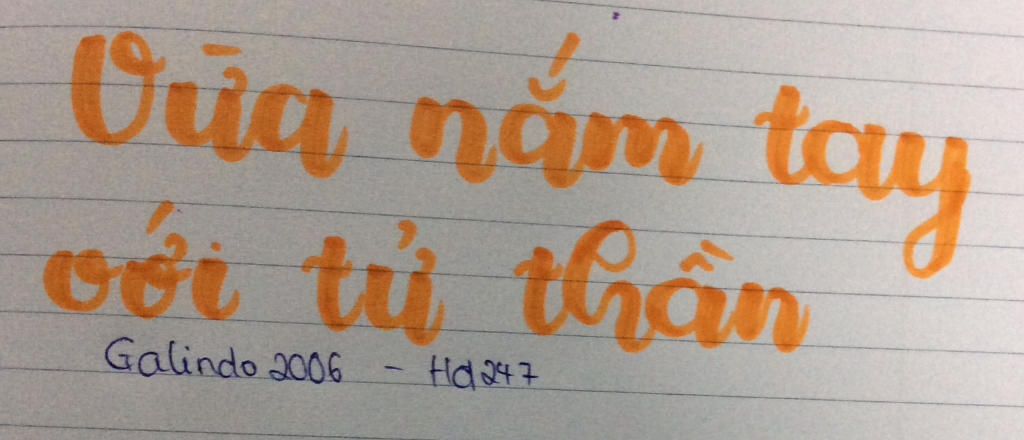 Vừa nắm tay
với tử thần
Galindo 2006 - Hd247